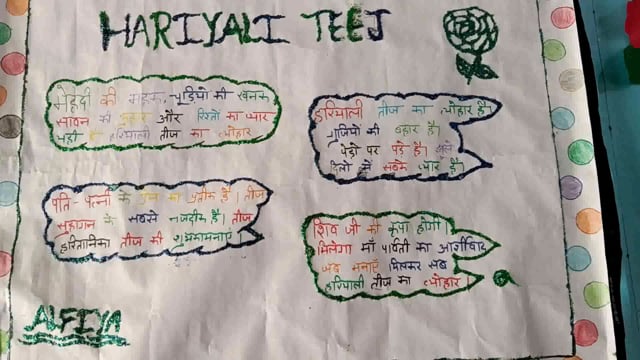 HARIYALI TEEJ
मेहंदी की महक, चूड़ियों की खनक
सावन की बहार और रिश्तों का प्यार
हरियाली तीज का त्योहार
हरियाली तीज का त्योहार है।
गुजियों की बहार है।
पेड़ों पर पड़े हैं झूले
दिलों में सबके प्यार है।
पति-पत्नी के प्रेम का प्रतीक है। तीज
सुहागन के सबसे नजदीक है। तीज
हरितालिका तीज की शुभकामनाएँ
शिव जी की कृपा होगी।
मिलेगा माँ पार्वती का आर्शीवाद
जब मनाएँ मिलकर सब
हरियाली तीज का त्योहार
ALFIYA